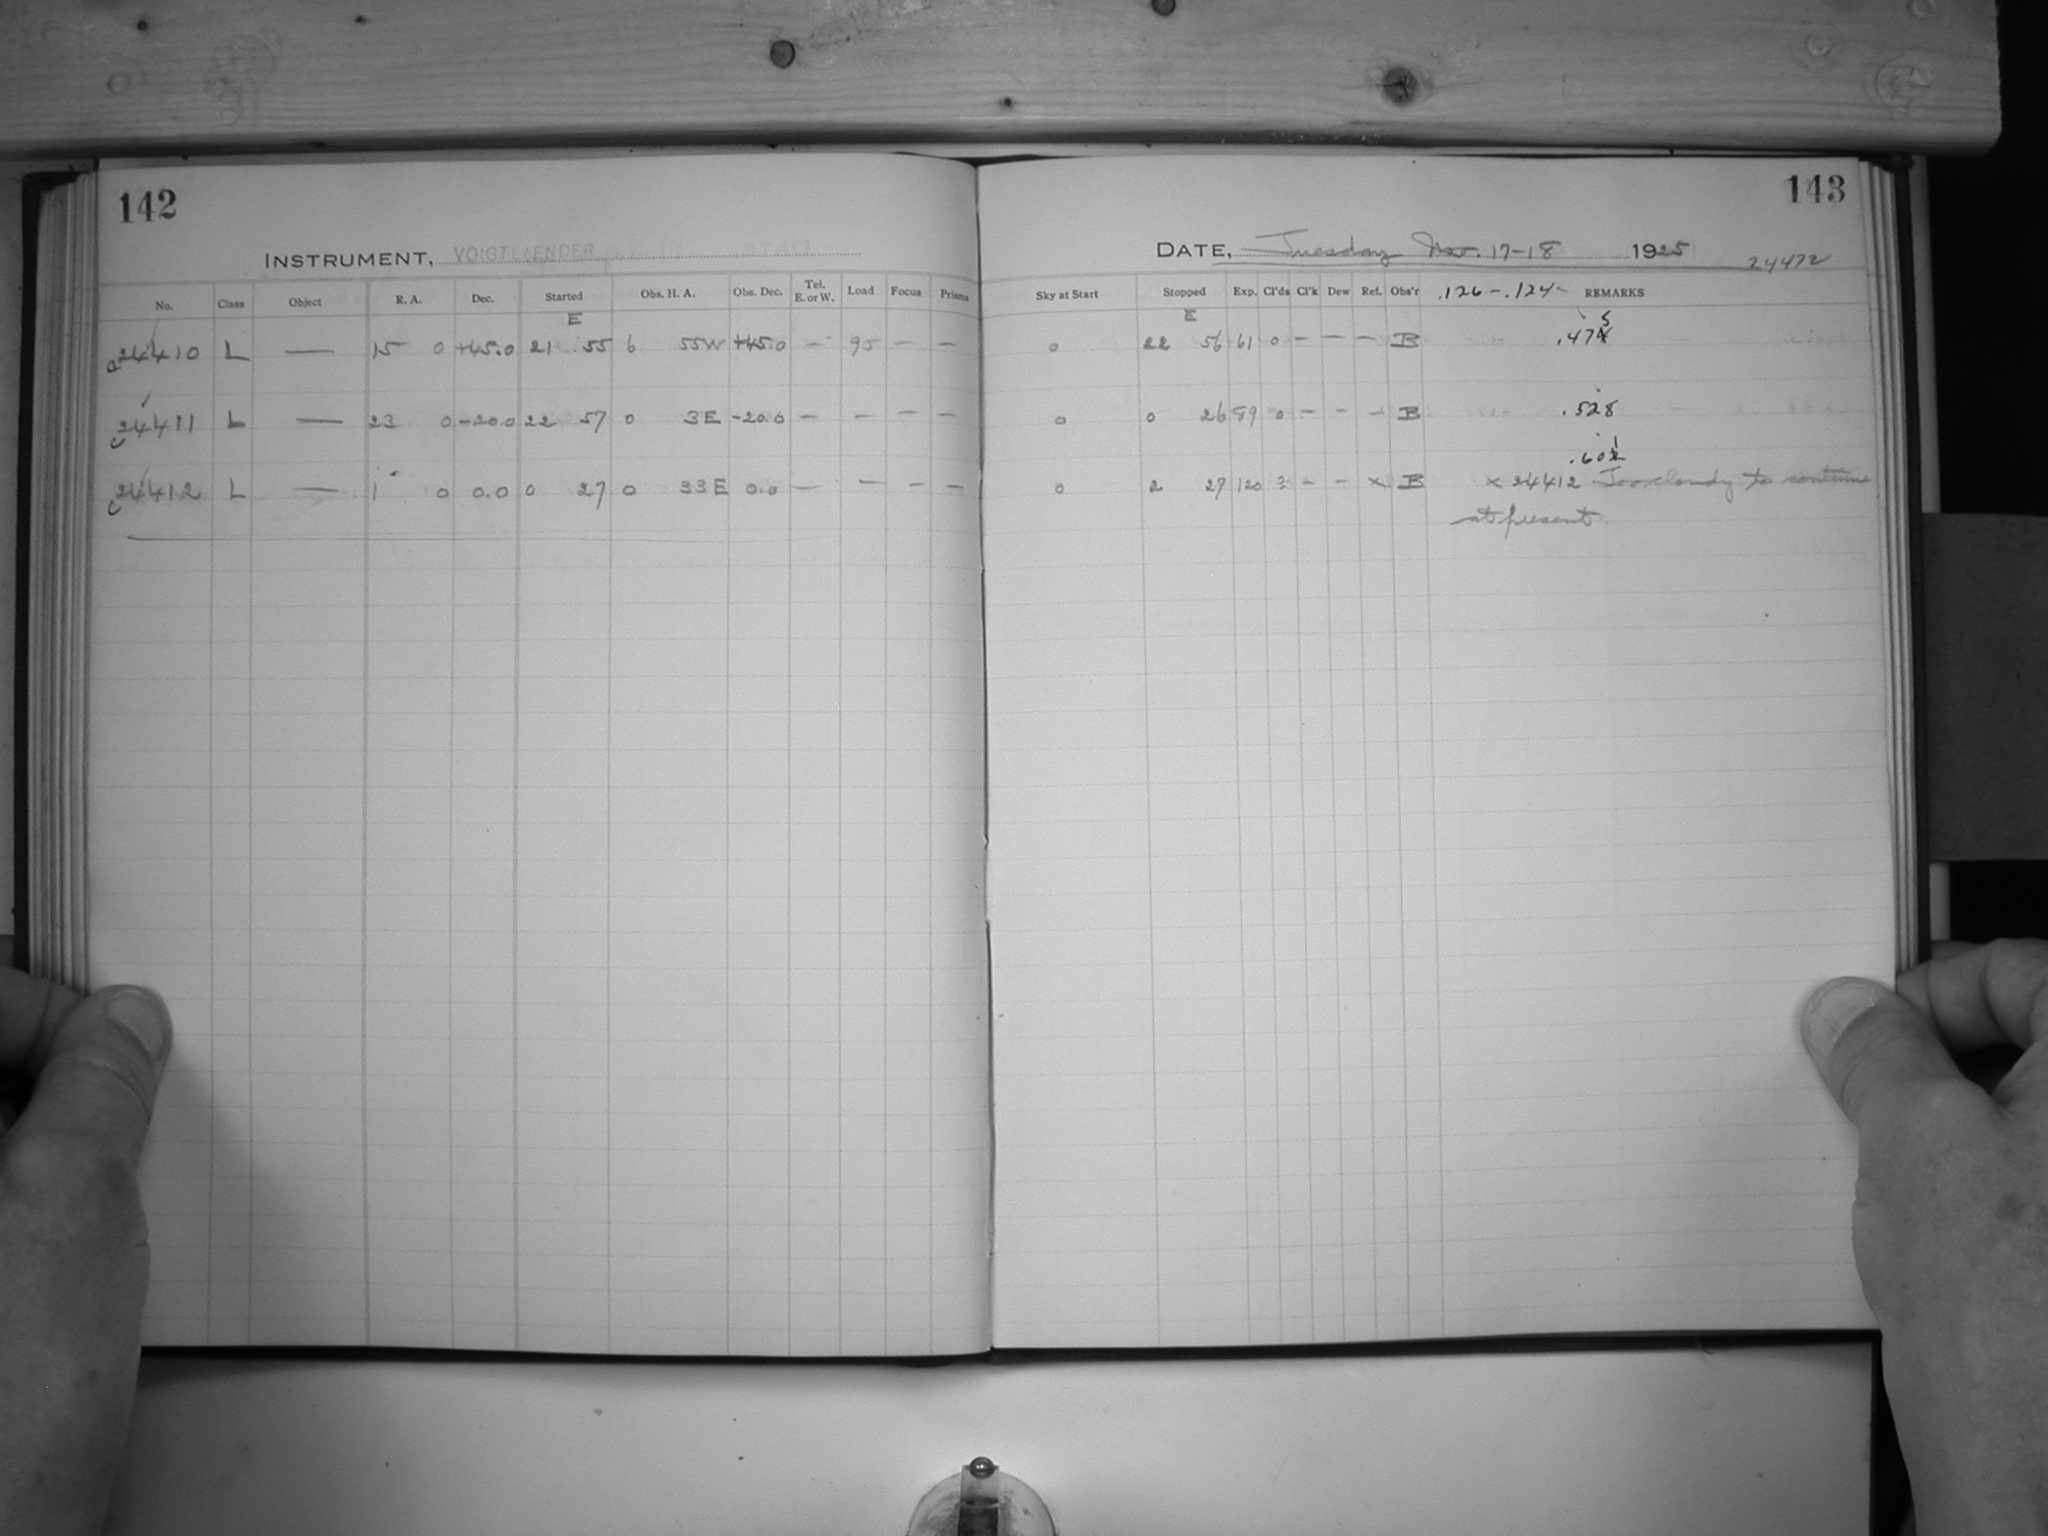 142
143
INSTRUMENT, VOIGTLAENDER
DATE, Tuesday Nov. 17-18 1925
24472
No. Class Object R. A. Dec. Started Obs. H. A. Obs. Dec. Tel. E. or W. Load Focus Prisms
Sky at Start Stopped Exp. Cl'ds Cl'k Dew Ref. Obs'r .126 - .124- REMARKS
E
E
a 24410 L — 15 0 +45.0 21 55 6 55W +45.0 — 95 — —
0 22 56 61 0 — — — B .475
c 24411 L — 23 0 -20.0 22 57 0 3E -20.0 — — — —
0 0 26 89 0 — — — B .528
.601
c 24412 L — 1 0 0.0 0 27 0 33E 0.0 — — — —
0 2 27 120 ? — — x B x 24412 Too cloudy to continue
at present.